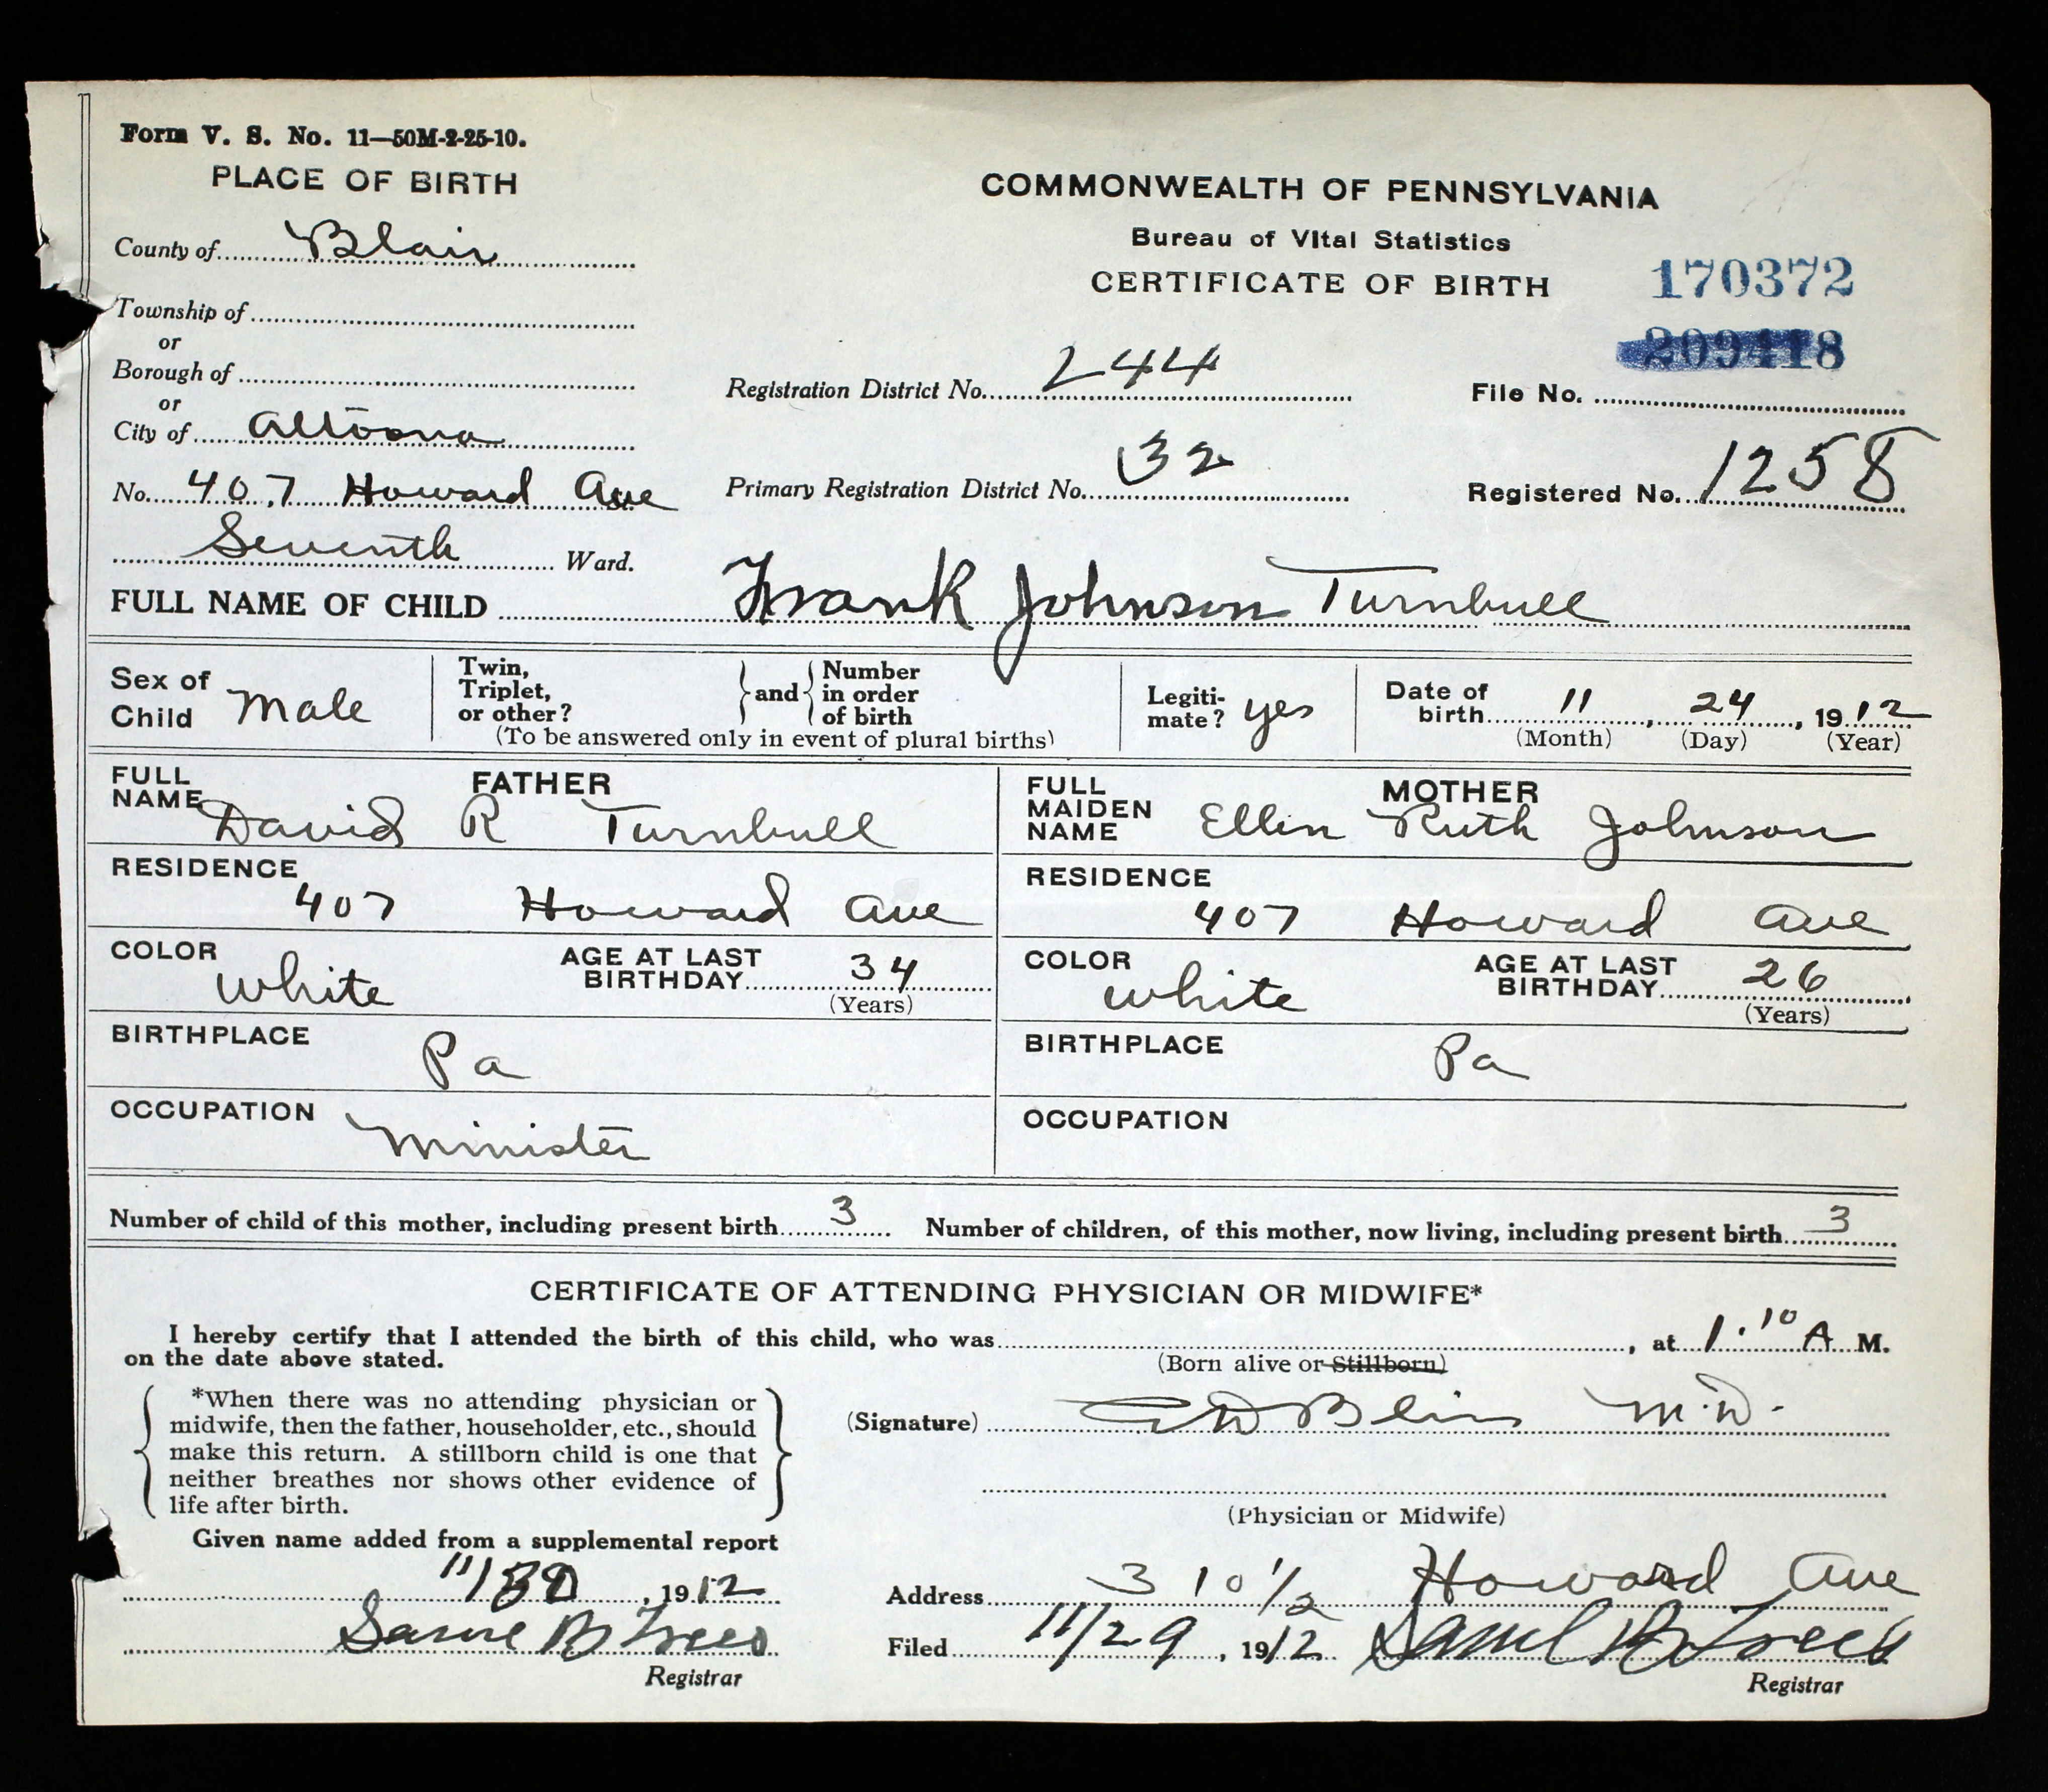 Form V. S. No. 11—50M-2-25-10.
PLACE OF BIRTH
COMMONWEALTH OF PENNSYLVANIA
Bureau of Vital Statistics
CERTIFICATE OF BIRTH
170372
209418
County of Blair
Township of
or
Borough of
or
City of Altoona
Registration District No. 244
File No.
No. 407 Howard Ave
Primary Registration District No. 32
Registered No. 1258
Seventh Ward.
FULL NAME OF CHILD Frank Johnson Turnbull
Sex of Child Male
Twin, Triplet, or other? } and { Number in order of birth
(To be answered only in event of plural births)
Legiti-mate? yes
Date of birth 11, 24, 1912
(Month) (Day) (Year)
FATHER
FULL NAME David R Turnbull
MOTHER
FULL MAIDEN NAME Ellen Ruth Johnson
RESIDENCE 407 Howard Ave
RESIDENCE 407 Howard Ave
COLOR white AGE AT LAST BIRTHDAY 34
(Years)
COLOR white AGE AT LAST BIRTHDAY 26
(Years)
BIRTHPLACE Pa
BIRTHPLACE Pa
OCCUPATION Minister
OCCUPATION
Number of child of this mother, including present birth 3 Number of children, of this mother, now living, including present birth 3
CERTIFICATE OF ATTENDING PHYSICIAN OR MIDWIFE*
I hereby certify that I attended the birth of this child, who was , at 1.10 A M.
on the date above stated.
(Born alive or Stillborn)
*When there was no attending physician or
midwife, then the father, householder, etc., should
make this return. A stillborn child is one that
neither breathes nor shows other evidence of
life after birth.
(Signature) M.D.
(Physician or Midwife)
Given name added from a supplemental report
11/30, 1912
Registrar
Address 310 1/2 Howard Ave
Filed 11/29, 1912
Registrar